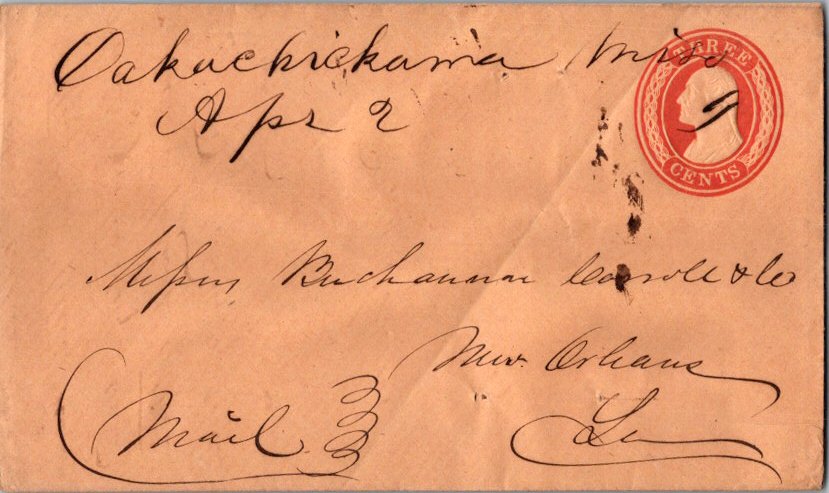 Oakachickama Miss
Apr 2
THREE
CENTS
Messrs Buchannan Carroll & Co
New Orleans
La
Mail